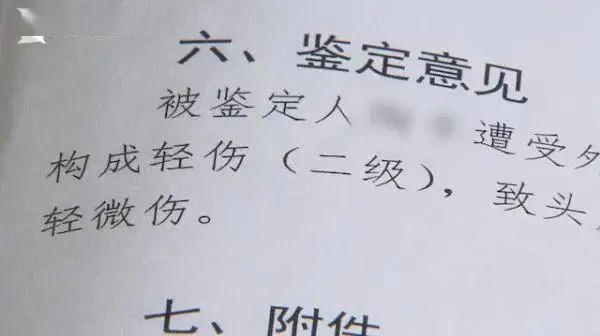 六、鉴定意见
被鉴定人 遭受外
构成轻伤(二级),致头
轻微伤。
七、附件